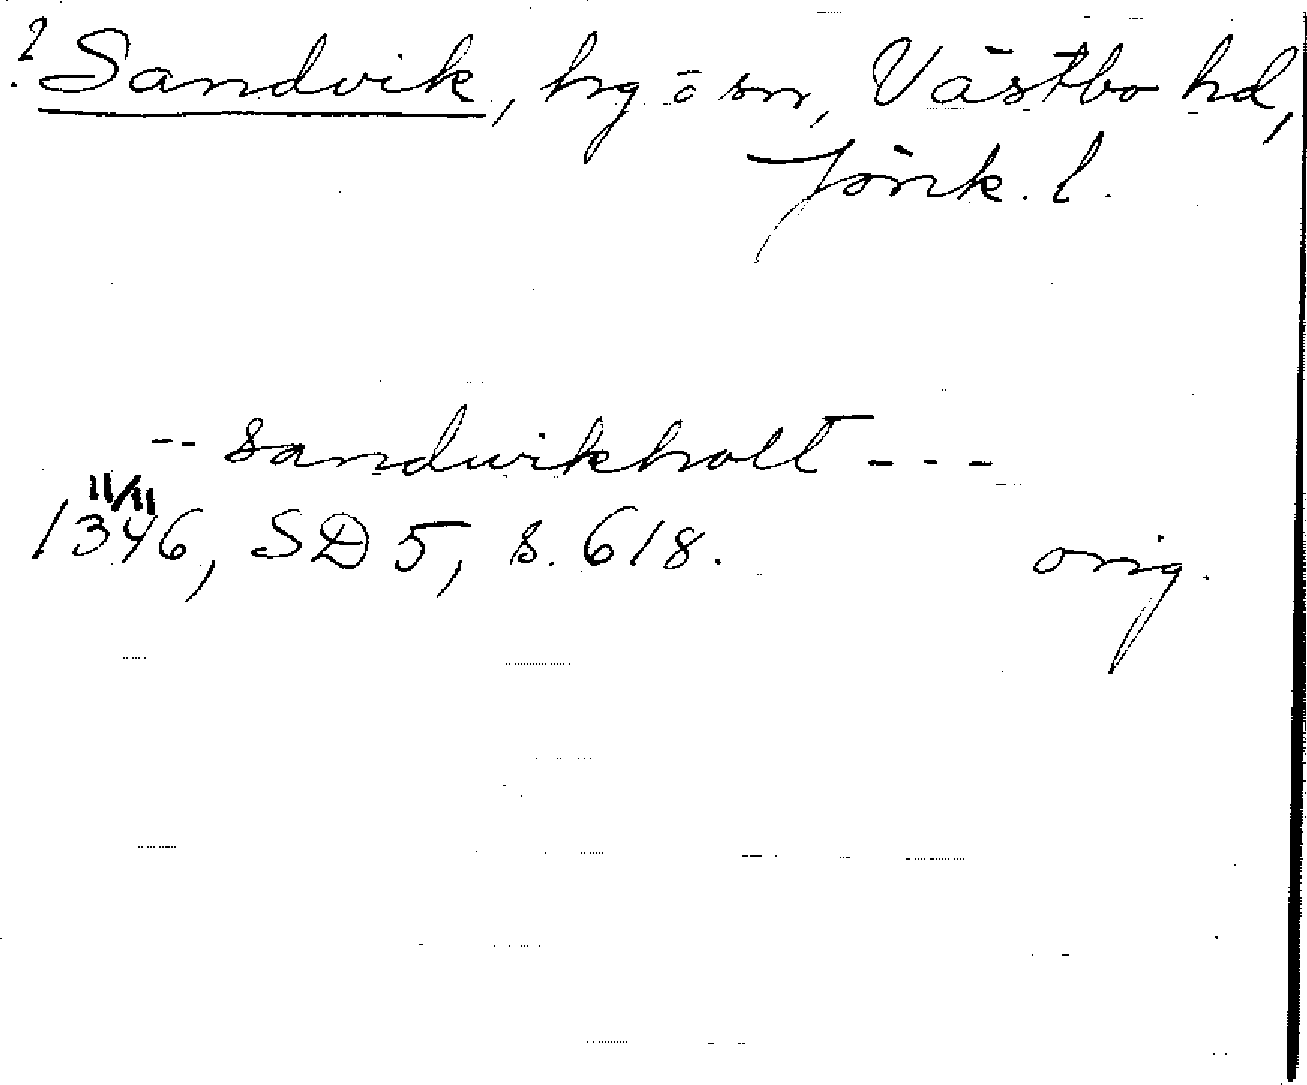 ? Sandvik, hg o sn, Västbo hd,
Jönk. l.
-- sandwikholt ---
11/11
1346, SD 5, s. 618. orig.